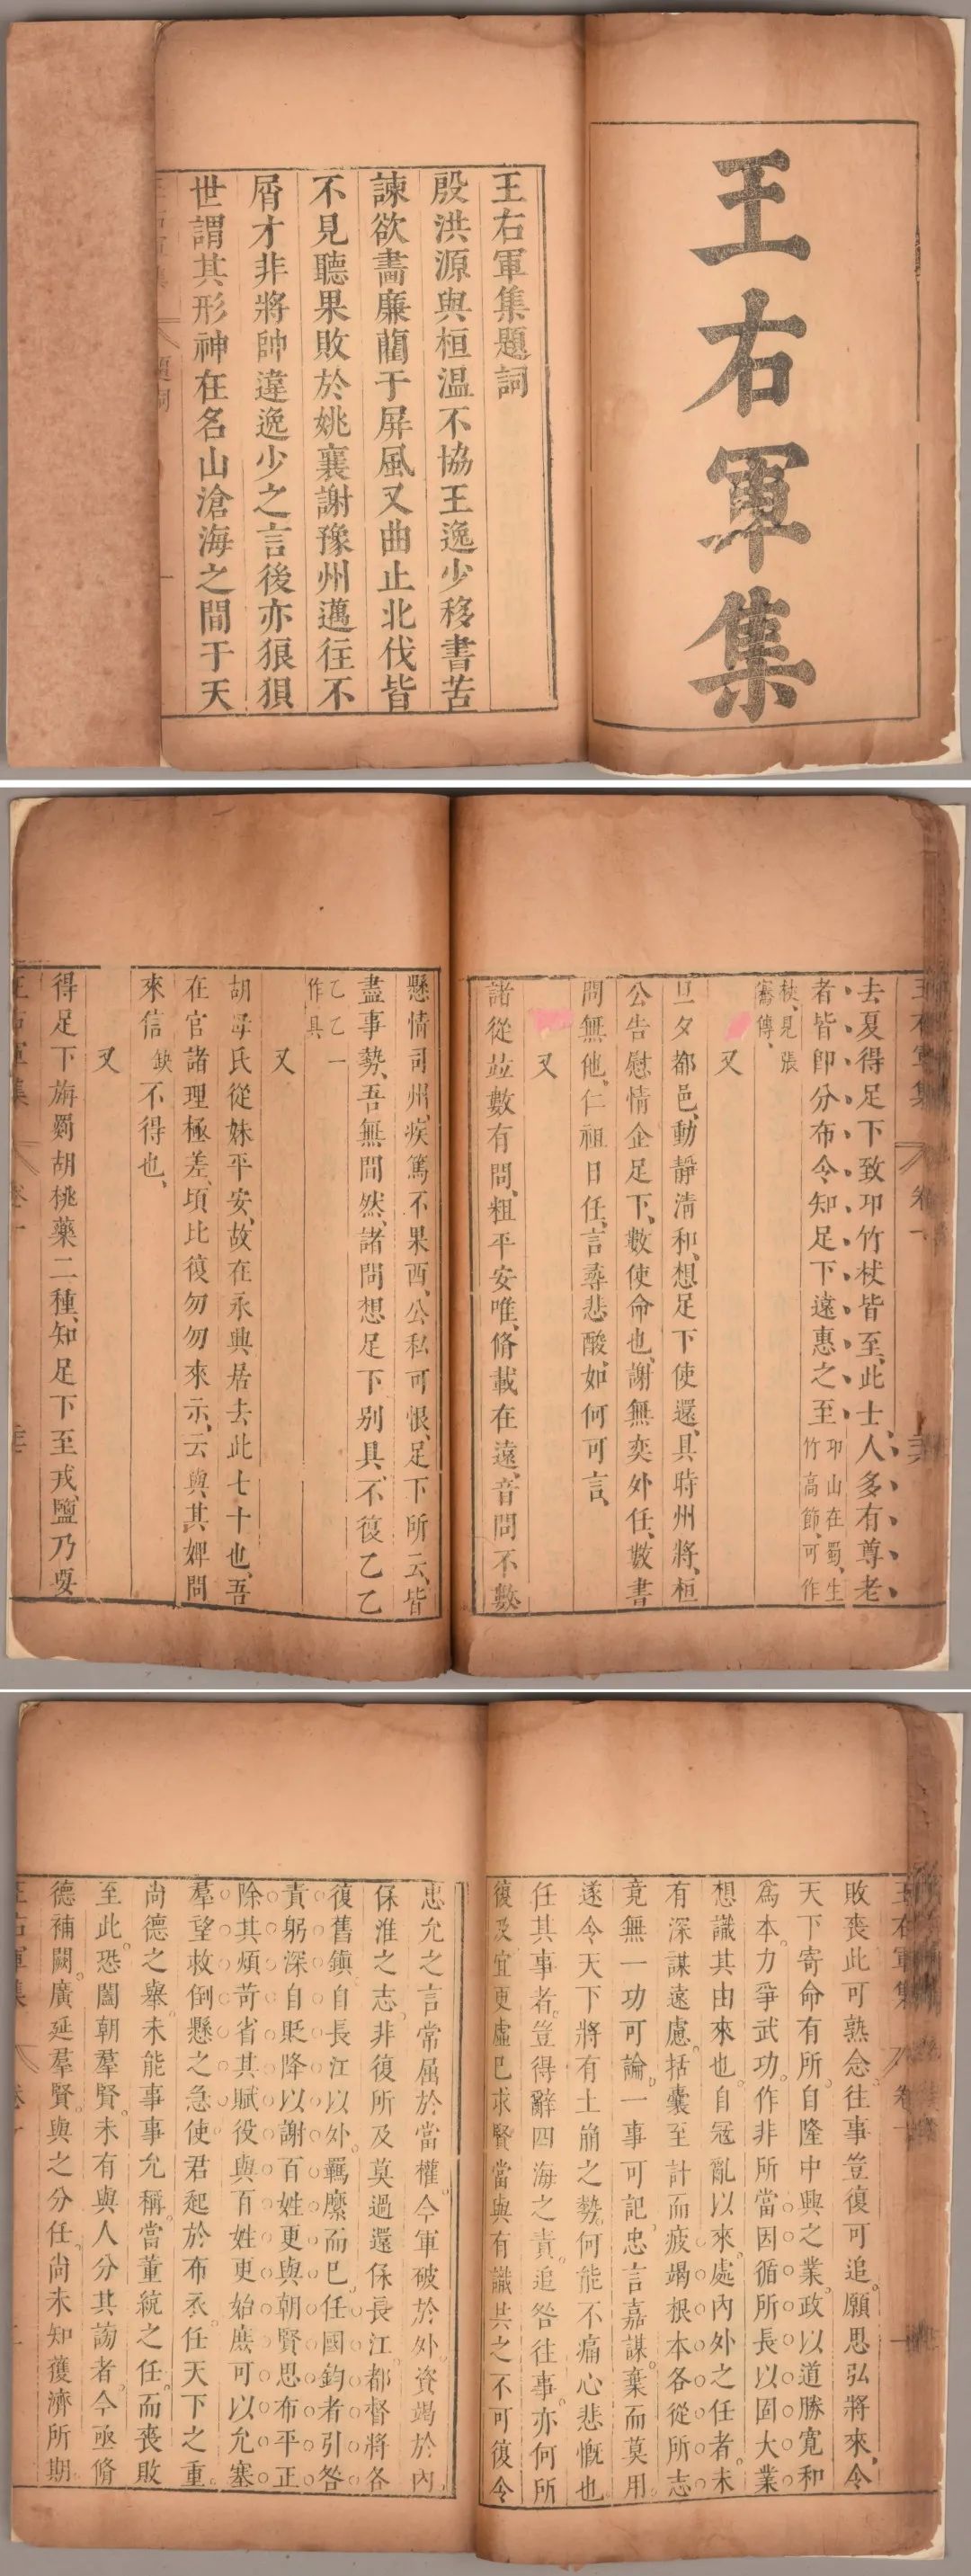 王右軍集
王右軍集題詞
殷洪源與桓温不協王逸少移書苦
諫欲畵廉藺于屏風又曲止北伐皆
不見聽果敗於姚襄謝豫州邁往不
屑才非將帥違逸少之言後亦狼狽
世謂其形神在名山滄海之間于天
題詞
一
王右軍集
卷一
去夏得足下致卭竹杖皆至、此士人多有尊老、
者皆卽分布令知足下遠惠之至卭山在蜀、生
竹高節、可作
杖、見張
騫傳、
又
旦夕都邑、動靜清和、想足下使還、具時州將、桓
公告慰情企足下、數使命也、謝無奕外任、數書
問無他、仁祖日任、言尋悲酸、如何可言、
又
諸從竝數有問、粗平安唯、脩載在遠、音問不數
懸情司州疾篤不果西、公私可恨、足下所云、皆
盡事勢、吾無間然、諸問想足下别具、不復乙乙
乙乙一
作具
又
胡母氏從妹平安、故在永興居去此七十也、吾
在官諸理極差、頃比復勿勿來示、云與其婢問
來信缺不得也、
又
得足下旃罽胡桃藥二種、知足下至戎、鹽乃要
王右軍集
卷一
王右軍集
卷一
敗喪此可熟念往事豈復可追願思弘將來、令
天下寄命有所自隆中興之業政以道勝寛和
爲本力爭武功作非所當因循所長以固大業
想識其由來也自寇亂以來處內外之任者未
有深謀遠慮括囊至計而疲竭根本各從所志
竟無一功可論一事可記忠言嘉謀棄而莫用
遂令天下將有土崩之勢何能不痛心悲慨也
任其事者豈得辭四海之責追咎往事亦何所
復及宜更虛已求賢當與有識共之不可復令
忠允之言常屈於當權今軍破於外資竭於內
保淮之志非復所及莫過還保長江都督將各
復舊鎭自長江以外羈縻而已任國鈞者引咎
責躬深自貶降以謝百姓更與朝賢思布平正
除其煩苛省其賦役與百姓更始庶可以允塞
羣望救倒懸之急使君起於布衣任天下之重
尚德之舉未能事事允稱當董統之任而喪敗
至此恐闔朝羣賢未有與人分其謗者今亟脩
德補闕廣延羣賢與之分任尚未知獲濟所期
王右軍集
卷一
二